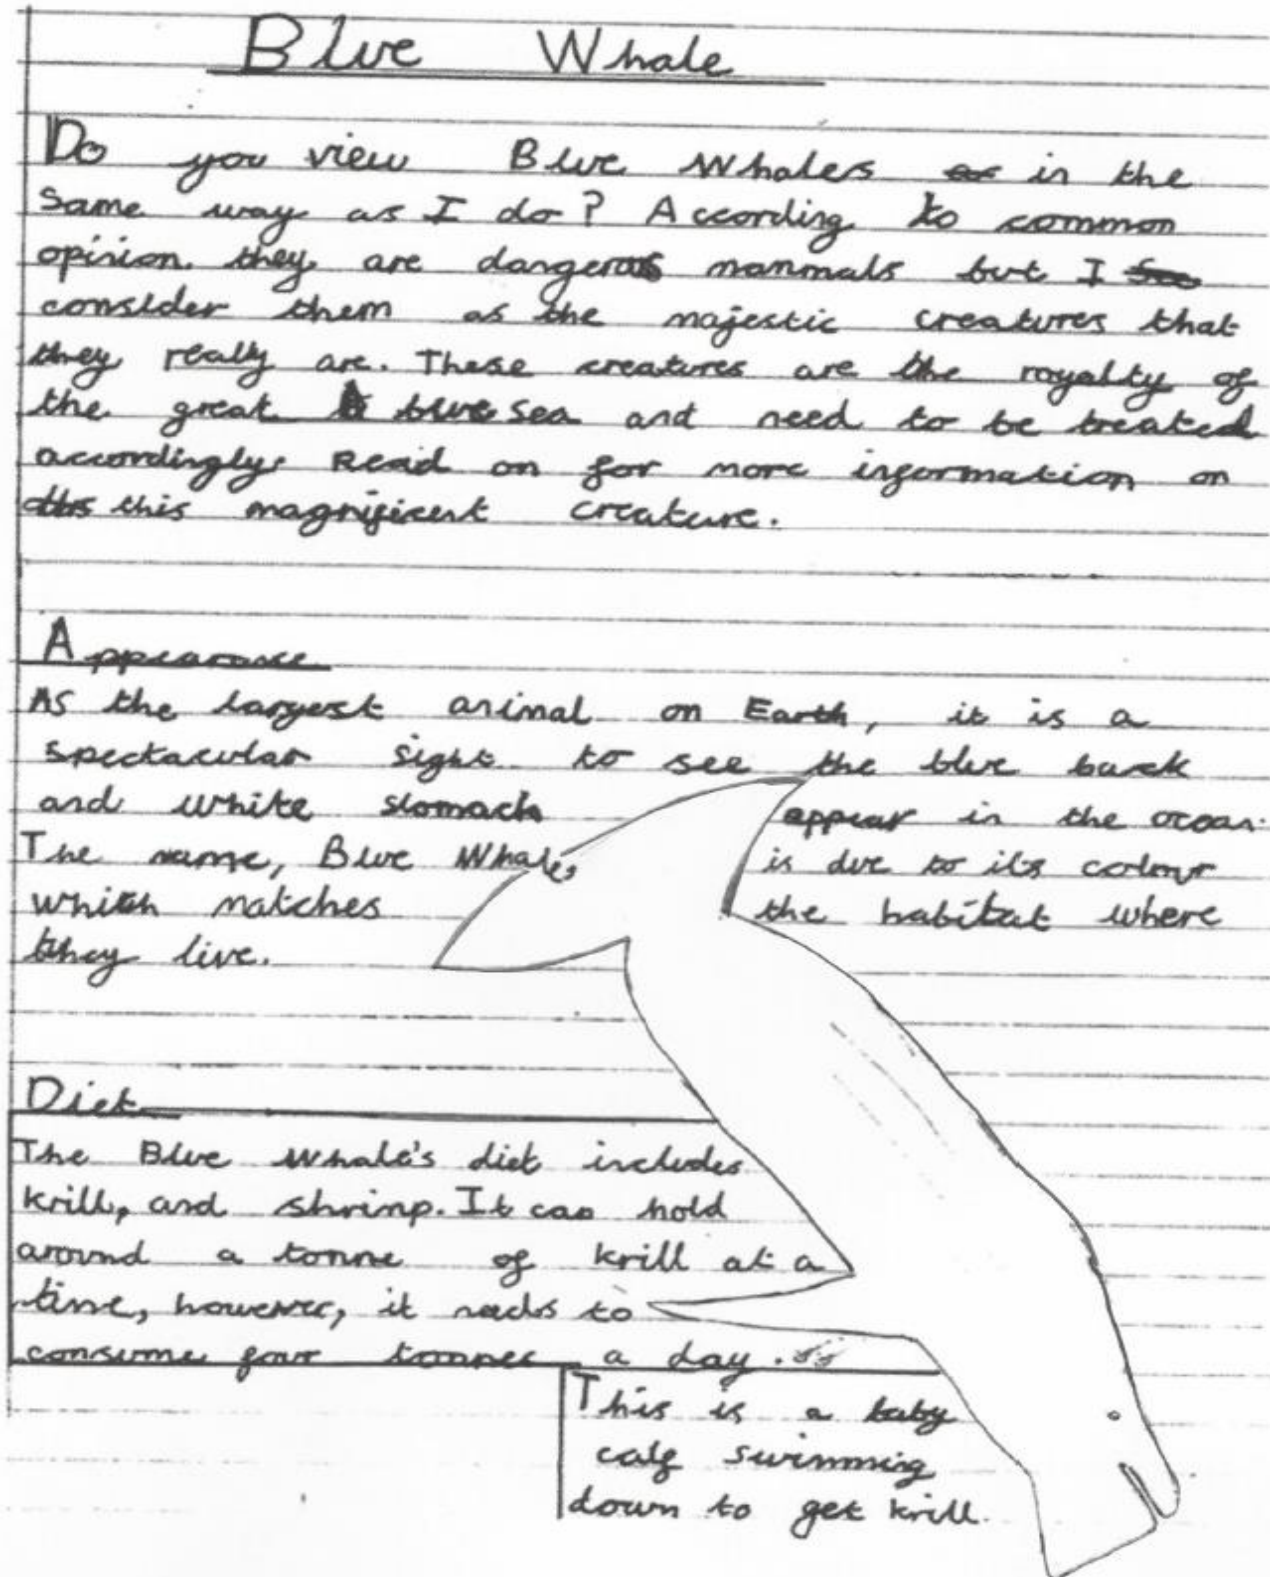 Blue Whale
Do you view Blue Whales in the
same way as I do? According to common
opinion they are dangerous mammals but I
consider them as the majestic creatures that
they really are. These creatures are the royalty of
the great blue sea and need to be treated
accordingly. Read on for more information on
this magnificent creature.
Appearance
As the largest animal on Earth, it is a
spectacular sight to see the blue back
and white stomach appear in the ocean.
The name, Blue Whale, is due to its colour
which matches the habitat where
they live.
Diet
The Blue Whale's diet includes
krill, and shrimp. It can hold
around a tonne of krill at a
time, however, it needs to
consume four tonnes a day.
This is a baby
calf swimming
down to get krill.